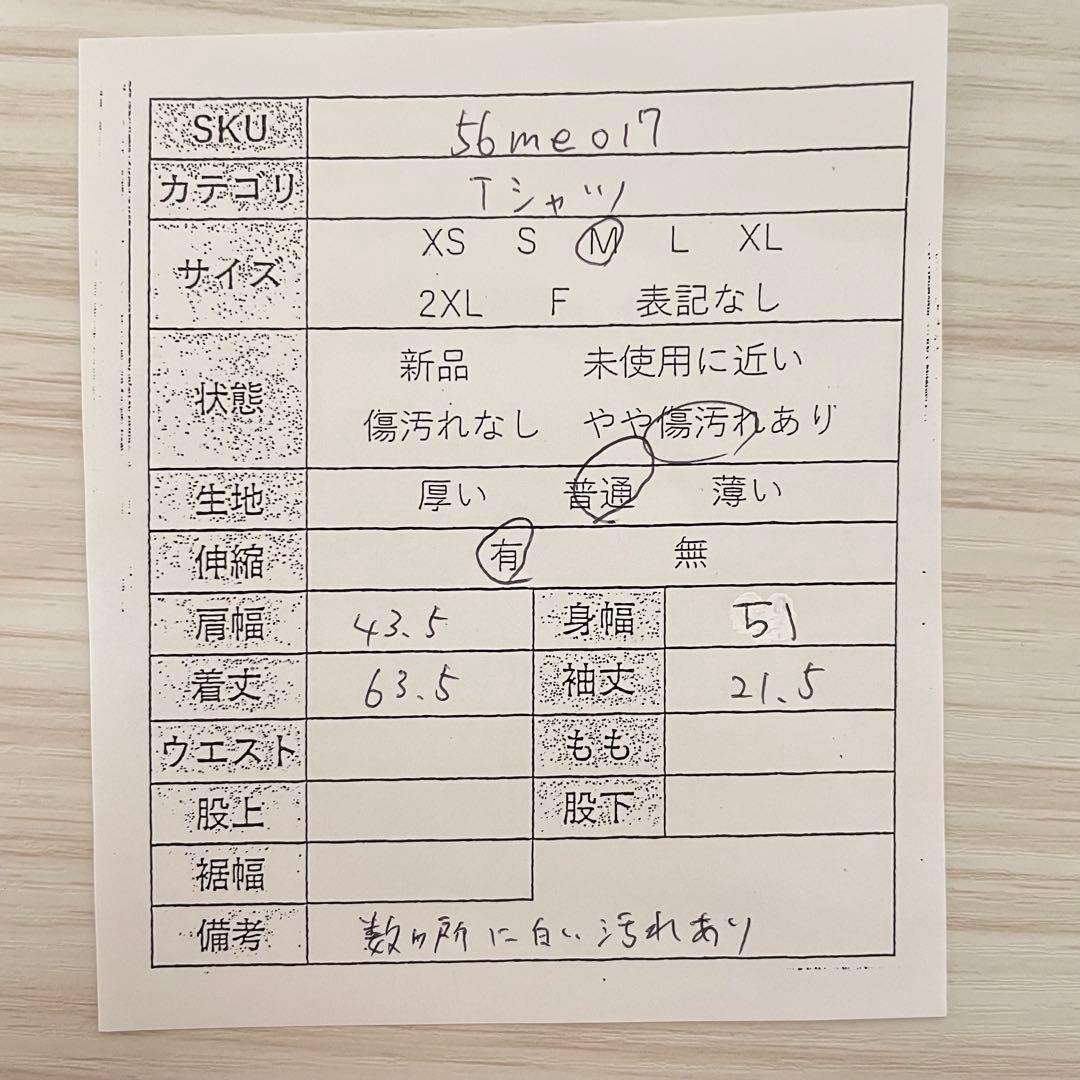 SKU 56me017
カテゴリ Tシャツ
サイズ XS S M L XL
2XL F 表記なし
状態 新品 未使用に近い
傷汚れなし やや傷汚れあり
生地 厚い 普通 薄い
伸縮 有 無
肩幅 43.5 身幅 51
着丈 63.5 袖丈 21.5
ウエスト もも
股上 股下
裾幅
備考 数ヶ所に白い汚れあり